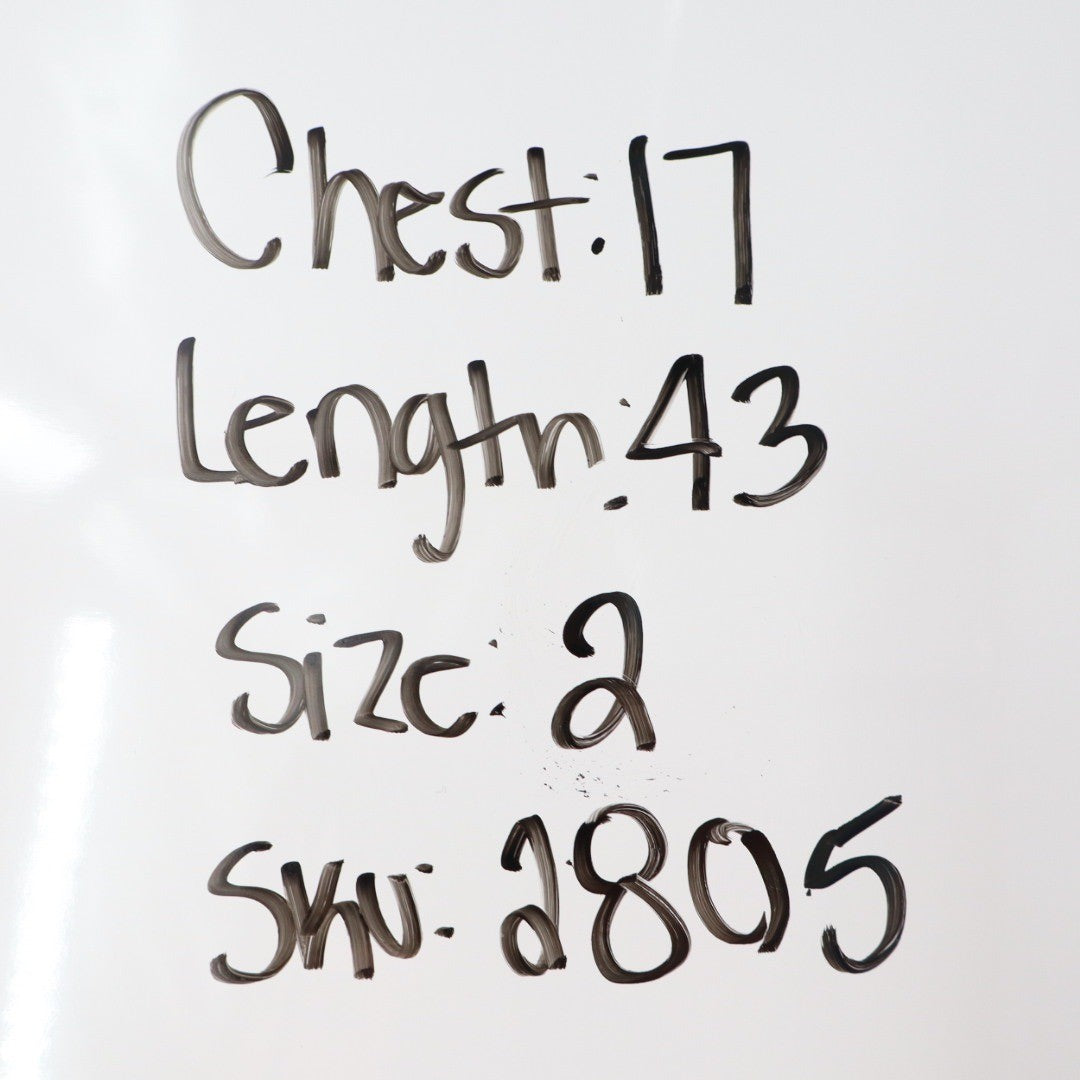 Chest: 17
Length: 43
Size: 2
Sku: 2805